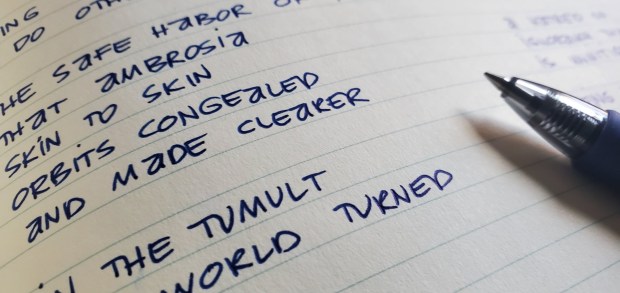 ING
DO OTH
HE SAFE HABOR O
THAT AMBROSIA
SKIN TO SKIN
ORBITS CONGEALED
AND MADE CLEARER
IN THE TUMULT
WORLD TURNED